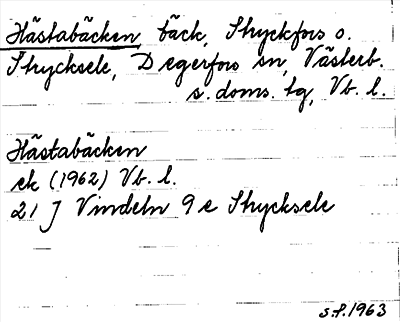 Hästabäcken bäck, Strycksfors o.
Strycksele, Degerfors sn, Västerb.
s. doms. tg, Vb. l.
Hästabäcken
ek (1962) Vb. l.
21 J Vindeln 9 e Strycksele
s.f. 1963